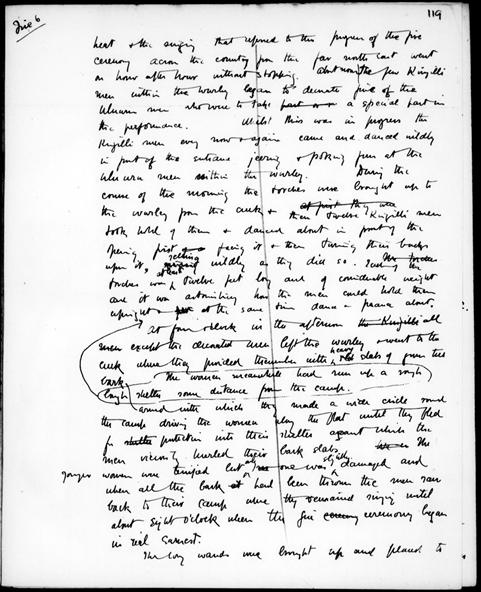 Fire 6
119
heat & the singing that referred to the progress of the fire
ceremony across the country from the far north East went
on hour after hour without stopping. About noon the few Kingilli
men within the wurley began to decorate five of the
Uluuru men who were to take part a special part in
the performance. Whilst this was in progress the
Kingilli men every now & again came and danced wildly
in front of the entrance jeering & poking fun at the
Uluuru men within the wurley. During the
course of the morning the torches were brought up to
the wurley from the creek & at first they were then twelve Kingilli men
took hold of them & danced about in front of the
opening first facing it & then turning their backs
upon it, yelling wildly as they did so. Each
torches was about twelve feet long and of considerable weight
and it was astonishing how the men could hold them
upright & at the same time dance & prance about.
At four o'clock in the afternoon the Kingilli all
men except the decorated men left the wurley & went to the
creek where they provided themselves with heavy slabs of gum tree
bark. The women meanwhile had run up a rough
bough shelter some distance from the camp.
armed with which they made a wide circle round
the camp driving the women along the flat until they fled
for shelter protection into their shelter against which the
men viciously hurled their bark slabs. The
younger women were terrified but only one was slightly damaged and
when all the bark had been thrown the men ran
back to their camp where they remained singing until
about Eight o'clock when the fire ceremony ceremony began
in real Earnest.
The long wands were brought up and placed to